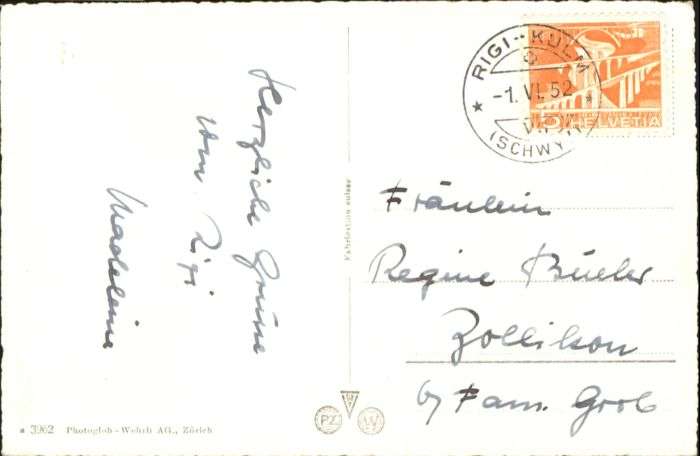 Herzliche Grüsse
vom Rigi
Madeleine
Fabrication suisse
RIGI-KULM
-1.VI.52
(SCHWYZ)
5 HELVETIA
Fräulein
Regine Büeler
Zollikon
b/ Fam. Grob
3962 Photoglob-Wehrli AG., Zürich
PZ
W